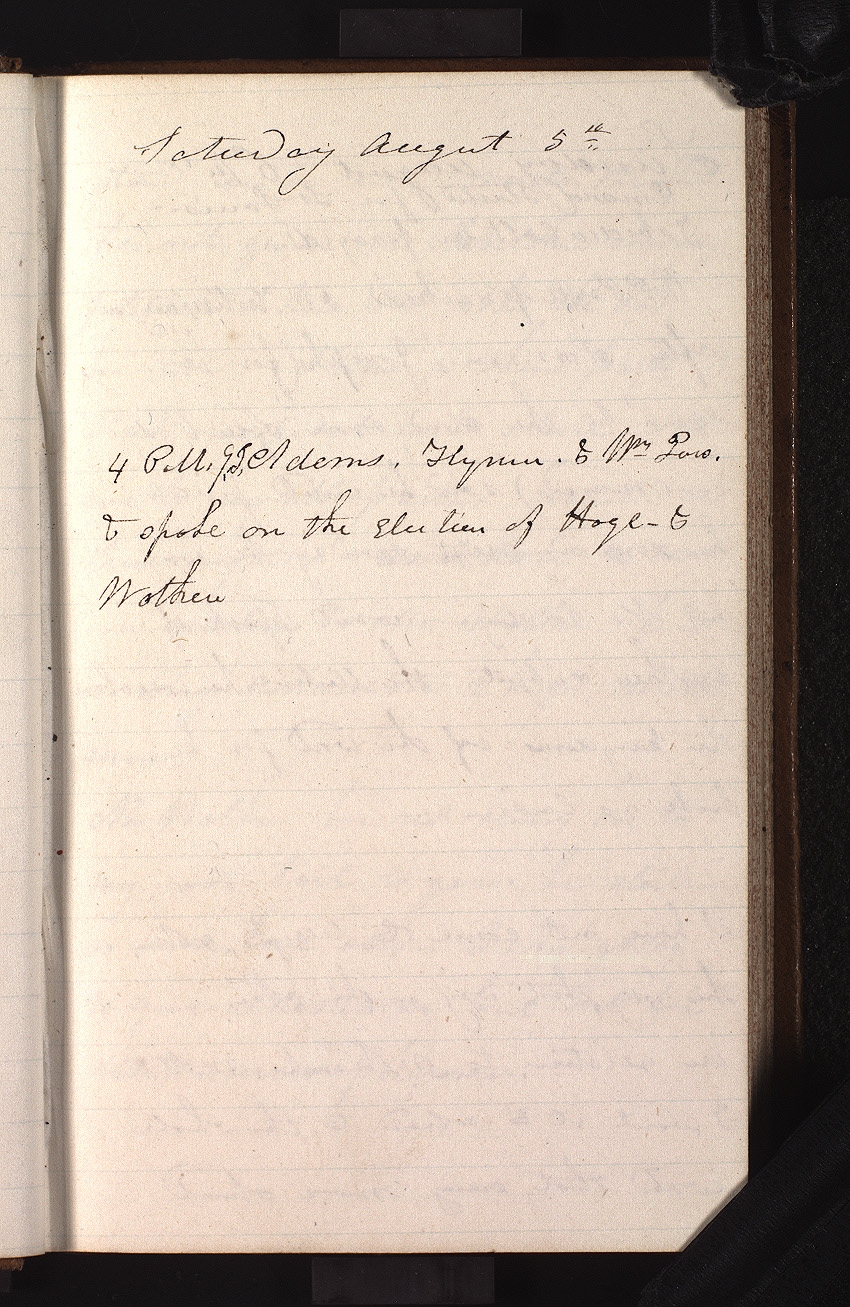 Saturday August 5th
4 P.M. J. J. Adams. Hymn. & Wm Law.
& spoke on the Election of Hoge - &
Walker